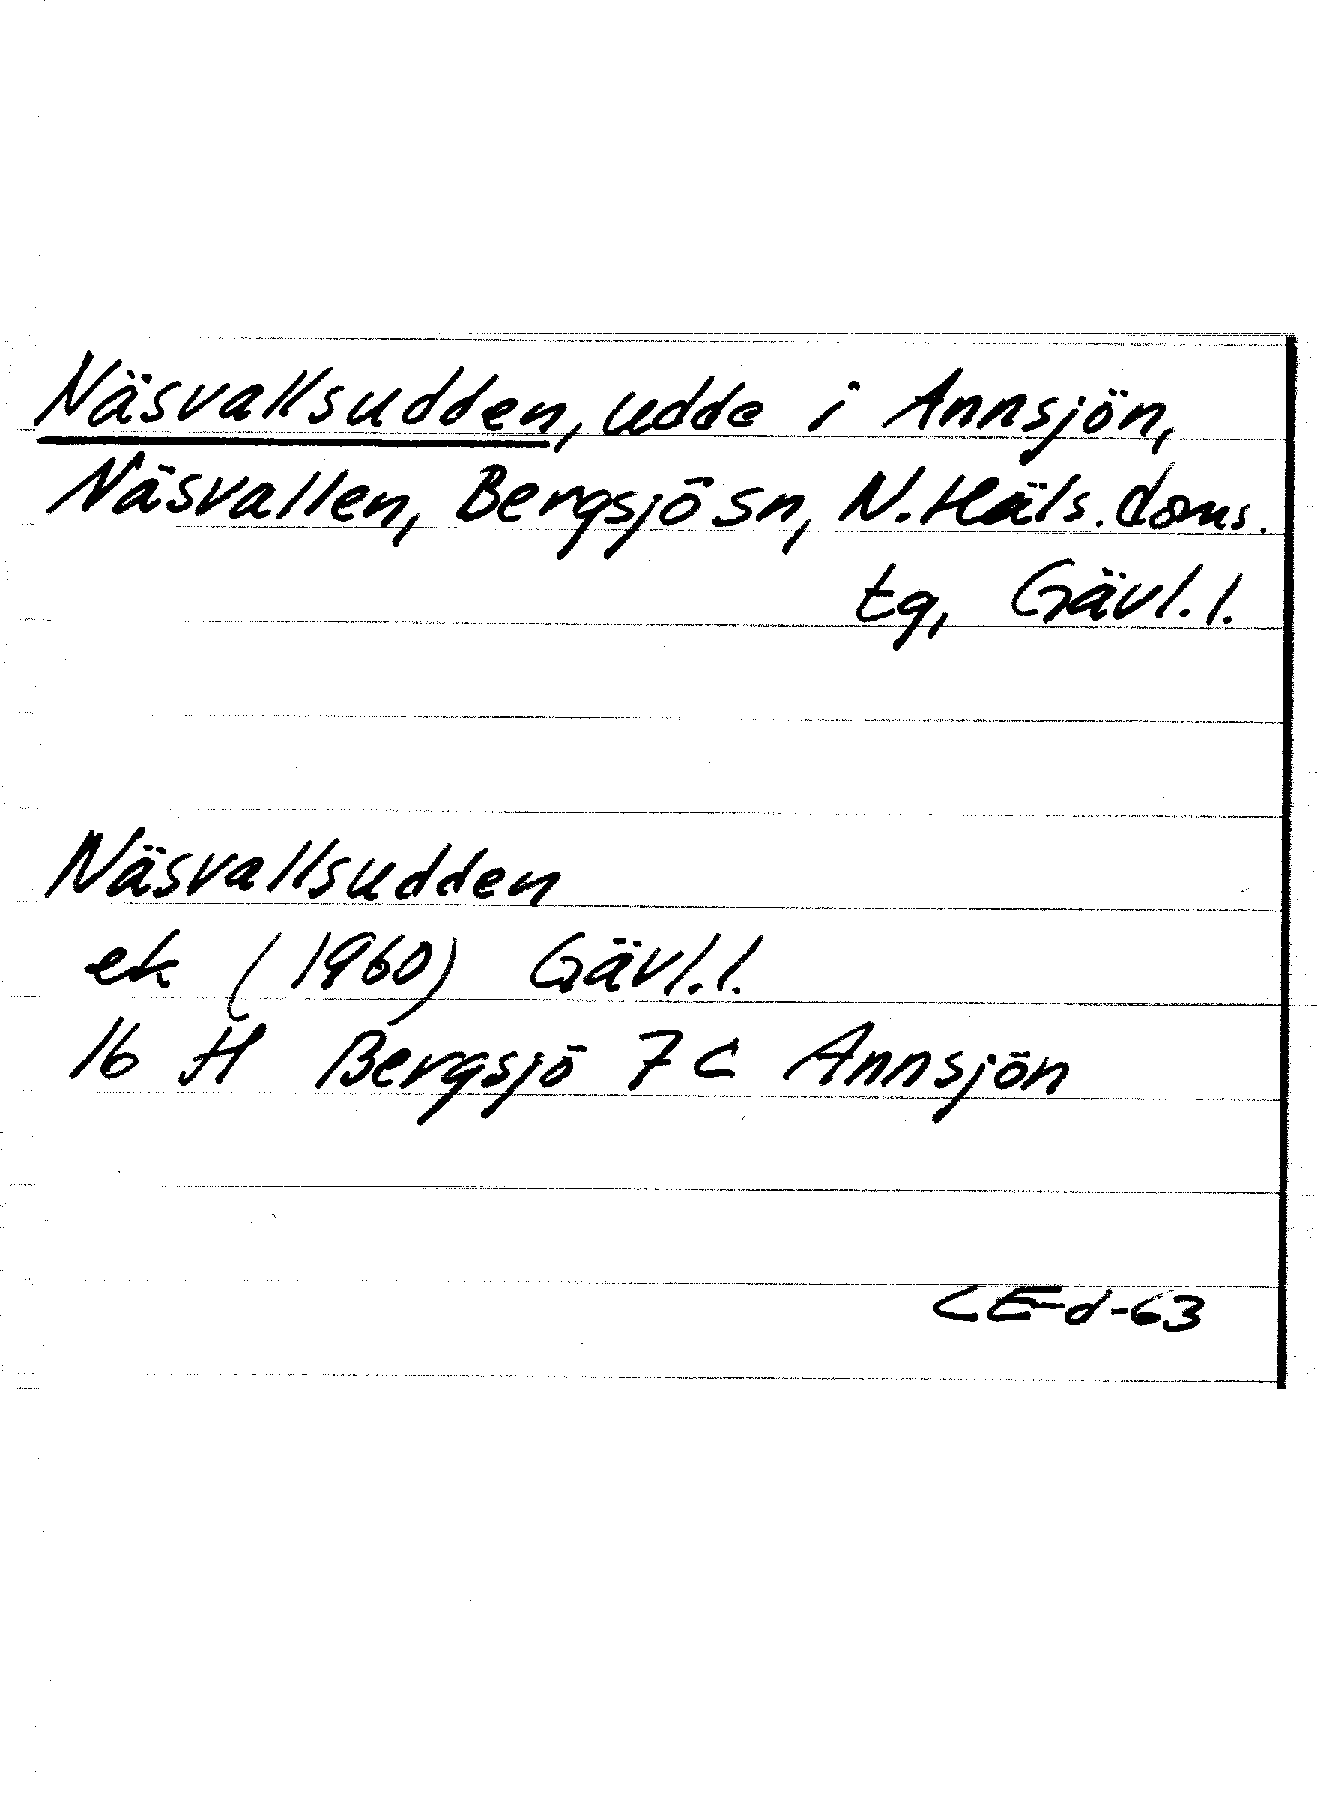 Näsvallsudden, udde i Annsjön,
Näsvallen, Bergsjö sn, N. Häls. doms.
tg, Gävl. l.
Näsvallsudden
ek (1960) Gävl. l.
16 H Bergsjö 7 C Annsjön
CE-d-63